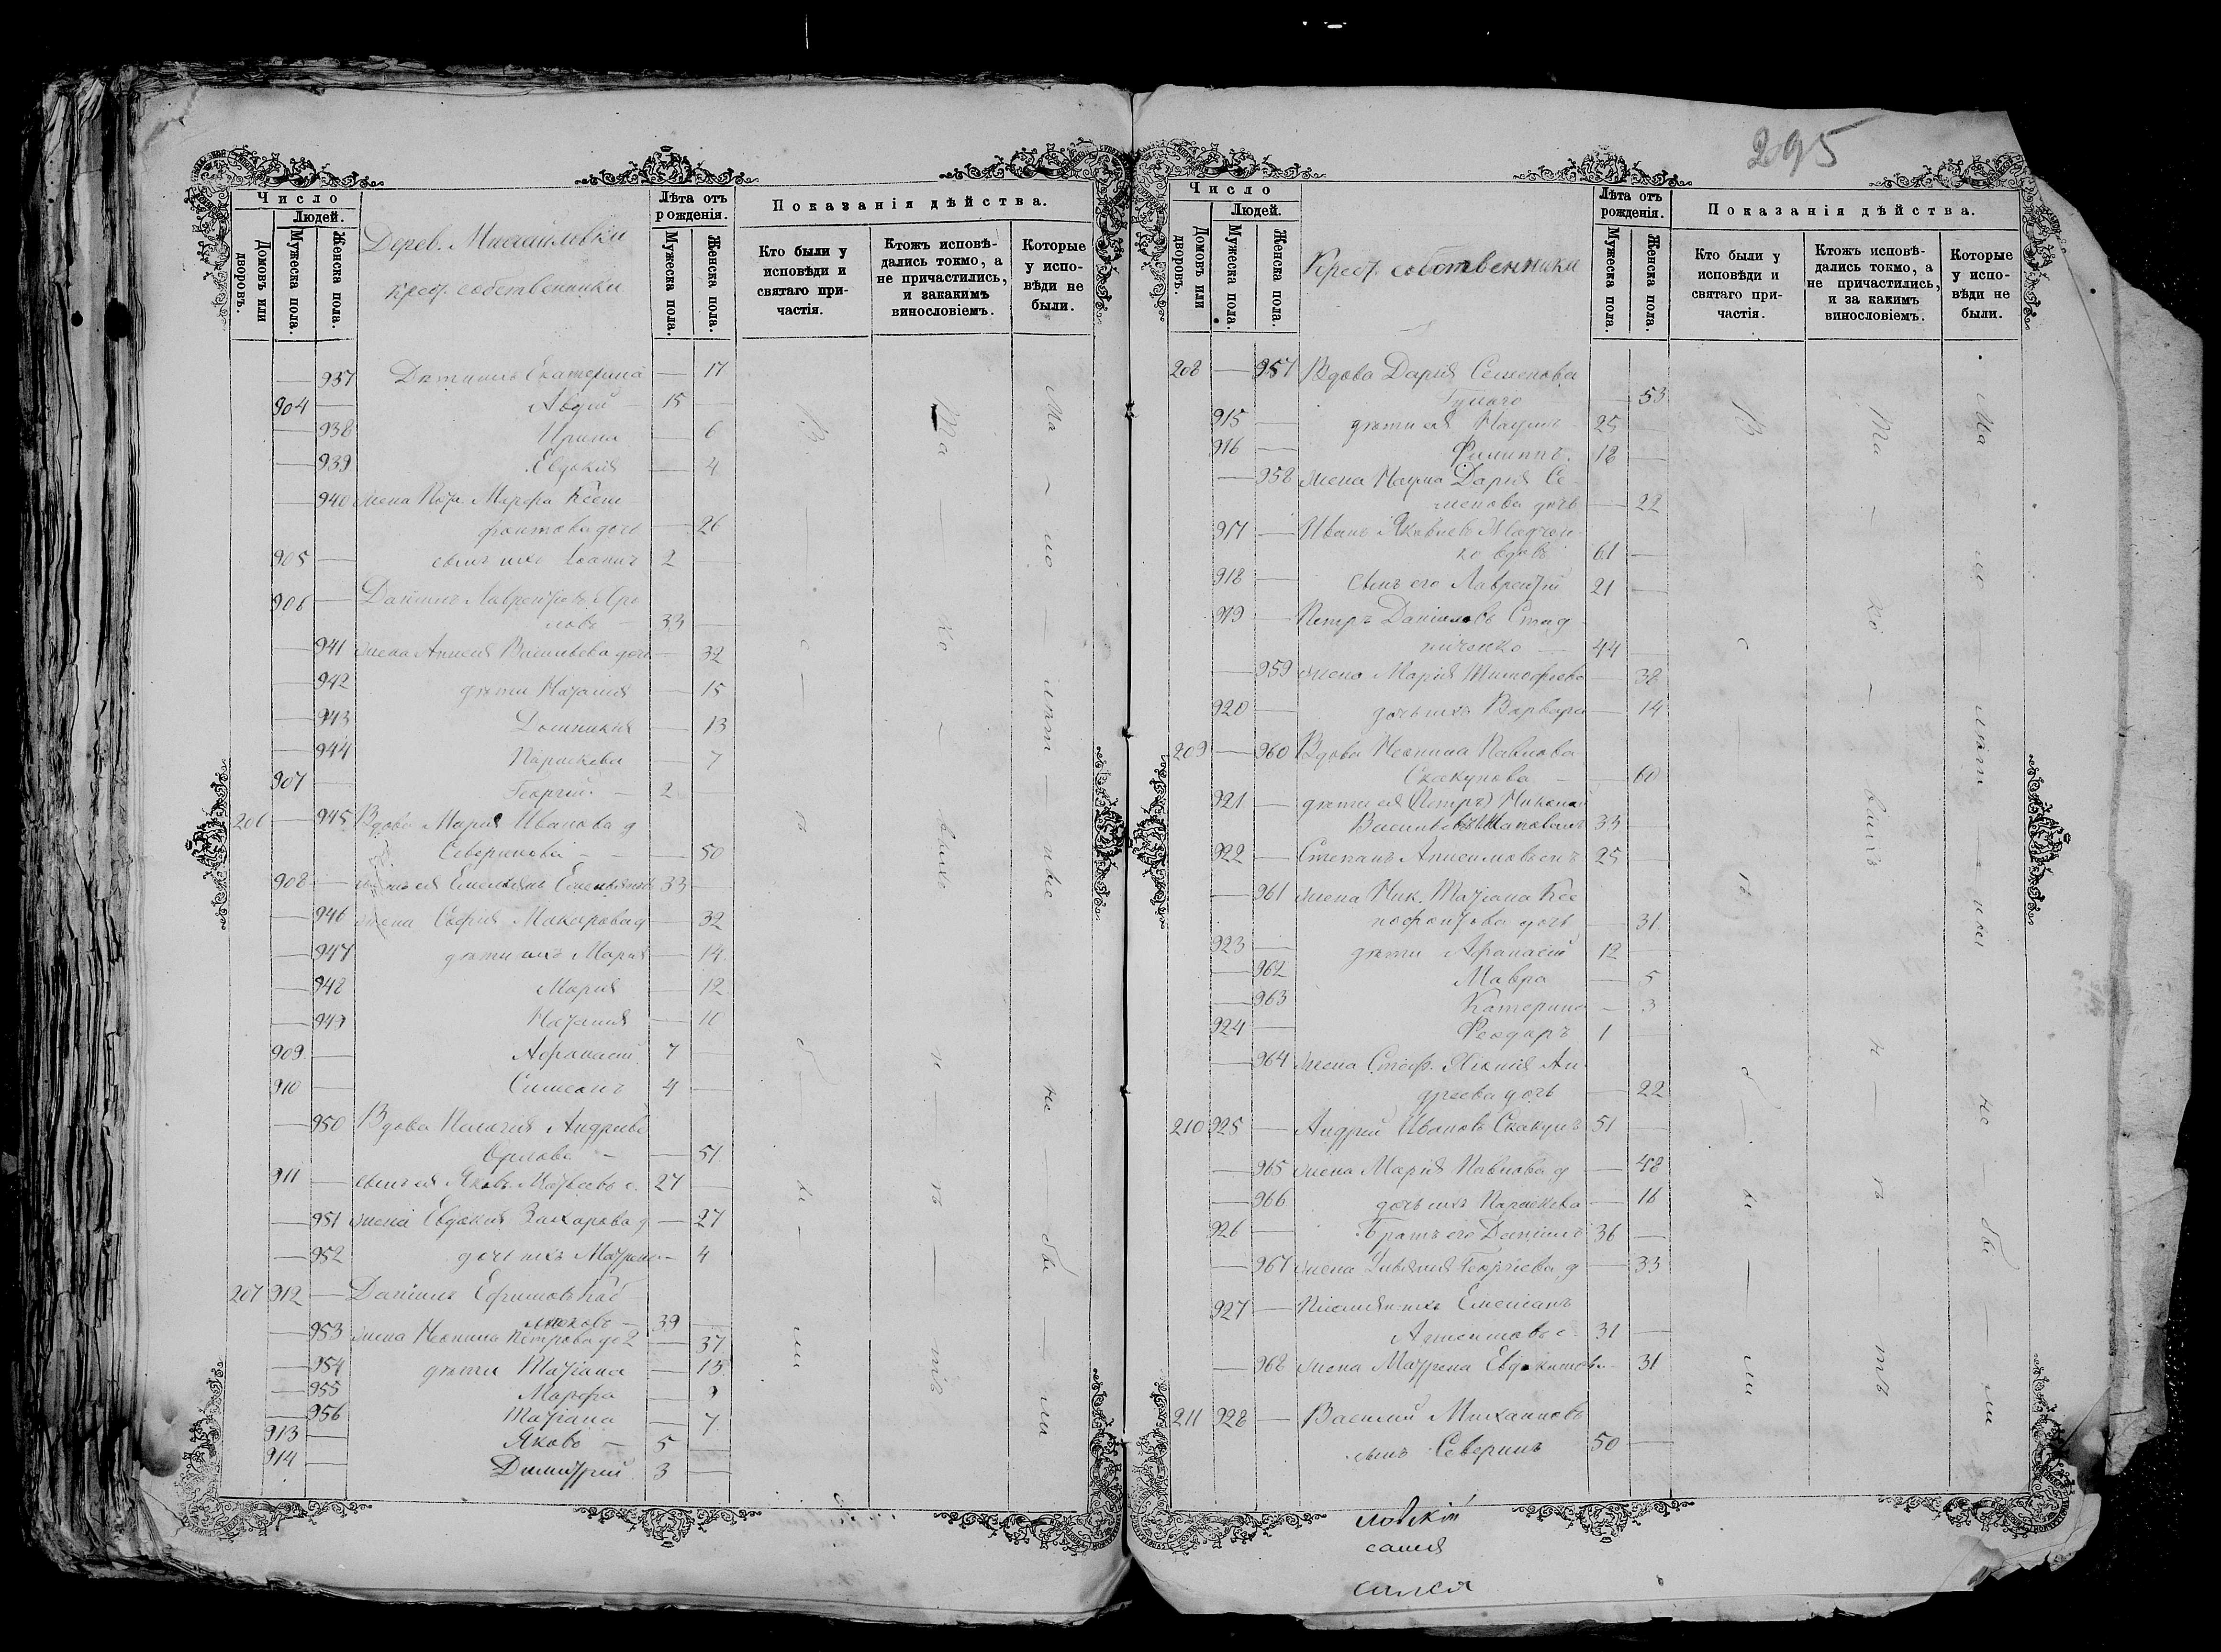 295
Число
Людей.
Домовъ или дворовъ.
Мужеска пола.
Женска пола.
Дерев. Михайловки
крест. собственники
Лѣта отъ рожденія.
Мужеска пола.
Женска пола.
Показанія дѣйства.
Кто были у исповѣди и святаго причастія.
Ктожъ исповѣдались токмо, а не причастились, и закакимъ винословіемъ.
Которые у исповѣди не были.
— 937 Екатерина — 17
904 — Авдій — 15 —
— 938 Ирина — 6
— 939 Евдокія — 4
— 940 жена Марфа Ксено
фонтова дочь — 26
905 — сынъ ихъ Іоаннъ 2 —
906 — Даніилъ Лаврентіевъ
— 33 —
— 941 жена Васильева дочь — 32
— 942 дѣти Наталія — 15
— 943 Домникія — 13
— 944 Параскева — 7
907 — Георгій — 2 —
206 — 945 Вдова Марія Иванова д
Северинова — — 50
908 — сынъ ея Емельянъ Емельяновъ 33 —
— 946 жена Софія Макарова д — 32
— 947 дѣти ихъ Марія — 14
— 948 Марія — 12
— 949 Наталія — 10
909 — Афанасій 7 —
910 — Симеонъ 4 —
— 950 Вдова Пелагія Андреева
Орлова — — 51
911 — сынъ ея Яковъ Матвѣевъ с. 27 —
— 951 жена Евдокія Захарова д — 27
— 952 дочь ихъ Матрена — 4
207 912 — Даніилъ Ефимовъ
— 39 —
— 953 жена Неонила Петрова до 2 — 37
— 954 дѣти Татіана — 15
— 955 Марфа — 9
— 956 Татіана — 7
913 — Яковъ — 5 —
914 — Димитрій 3 —
В — с — ѣ — б — ы — ли
Та — ко — выхъ — н — ѣ — тъ
Ма — ло — лѣт — ные — не — бы — ли
Число
Людей.
Домовъ или дворовъ.
Мужеска пола.
Женска пола.
Крест. собственники
Лѣта отъ рожденія.
Мужеска пола.
Женска пола.
Показанія дѣйства.
Кто были у исповѣди и святаго причастія.
Ктожъ исповѣдались токмо, а не причастились, и за какимъ винословіемъ.
Которые у исповѣди не были.
208 — 957 Вдова Дарія Семенова
— 53
915 — дѣти ея Наумъ 25 —
916 — Филиппъ 18 —
— 958 жена Наума Дарія Се
менова дочь — 22
917 — Иванъ Яковлевъ
ко вдовъ 61 —
918 — сынъ его Лаврентій 21 —
919 — Петръ Даніиловъ Стад
ниченко — 44 —
— 959 жена Марія Тимофѣева — 38
920 — дочь ихъ Варвара — 14
209 — 960 Вдова Неонила Павлова
Скакунова — — 60
921 — дѣти ея (Петръ) Николай
Васильевъ 33 —
922 — Степанъ Анисимовъ с—ъ 25 —
— 961 жена Ник. Татіана Ксе
нофонтова дочь — 31
923 — дѣти Афанасій 12 —
— 962 Мавра — 5
— 963 Катерина — 3
924 — Феодоръ 1 —
— 964 жена Стеф. Ан
дреева дочь — 22
210 925 — Андрей Ивановъ Скакунъ 51 —
— 965 жена Марія Павлова д — 48
— 966 дочь ихъ Параскева — 16
926 — Братъ его Даніилъ 36 —
— 967 жена Уліянія Георгіева д — 33
927 — ихъ
Анисимовъ с. 31 —
— 968 жена Матрена Евдокимова — 31
211 928 — Василій Михаиловъ
сынъ Северинъ 50 —
В — с — ѣ — б — ы — ли
Та — ко — выхъ — н — ѣ — тъ
Ма — ло — лѣт — ные — не — бы — ли